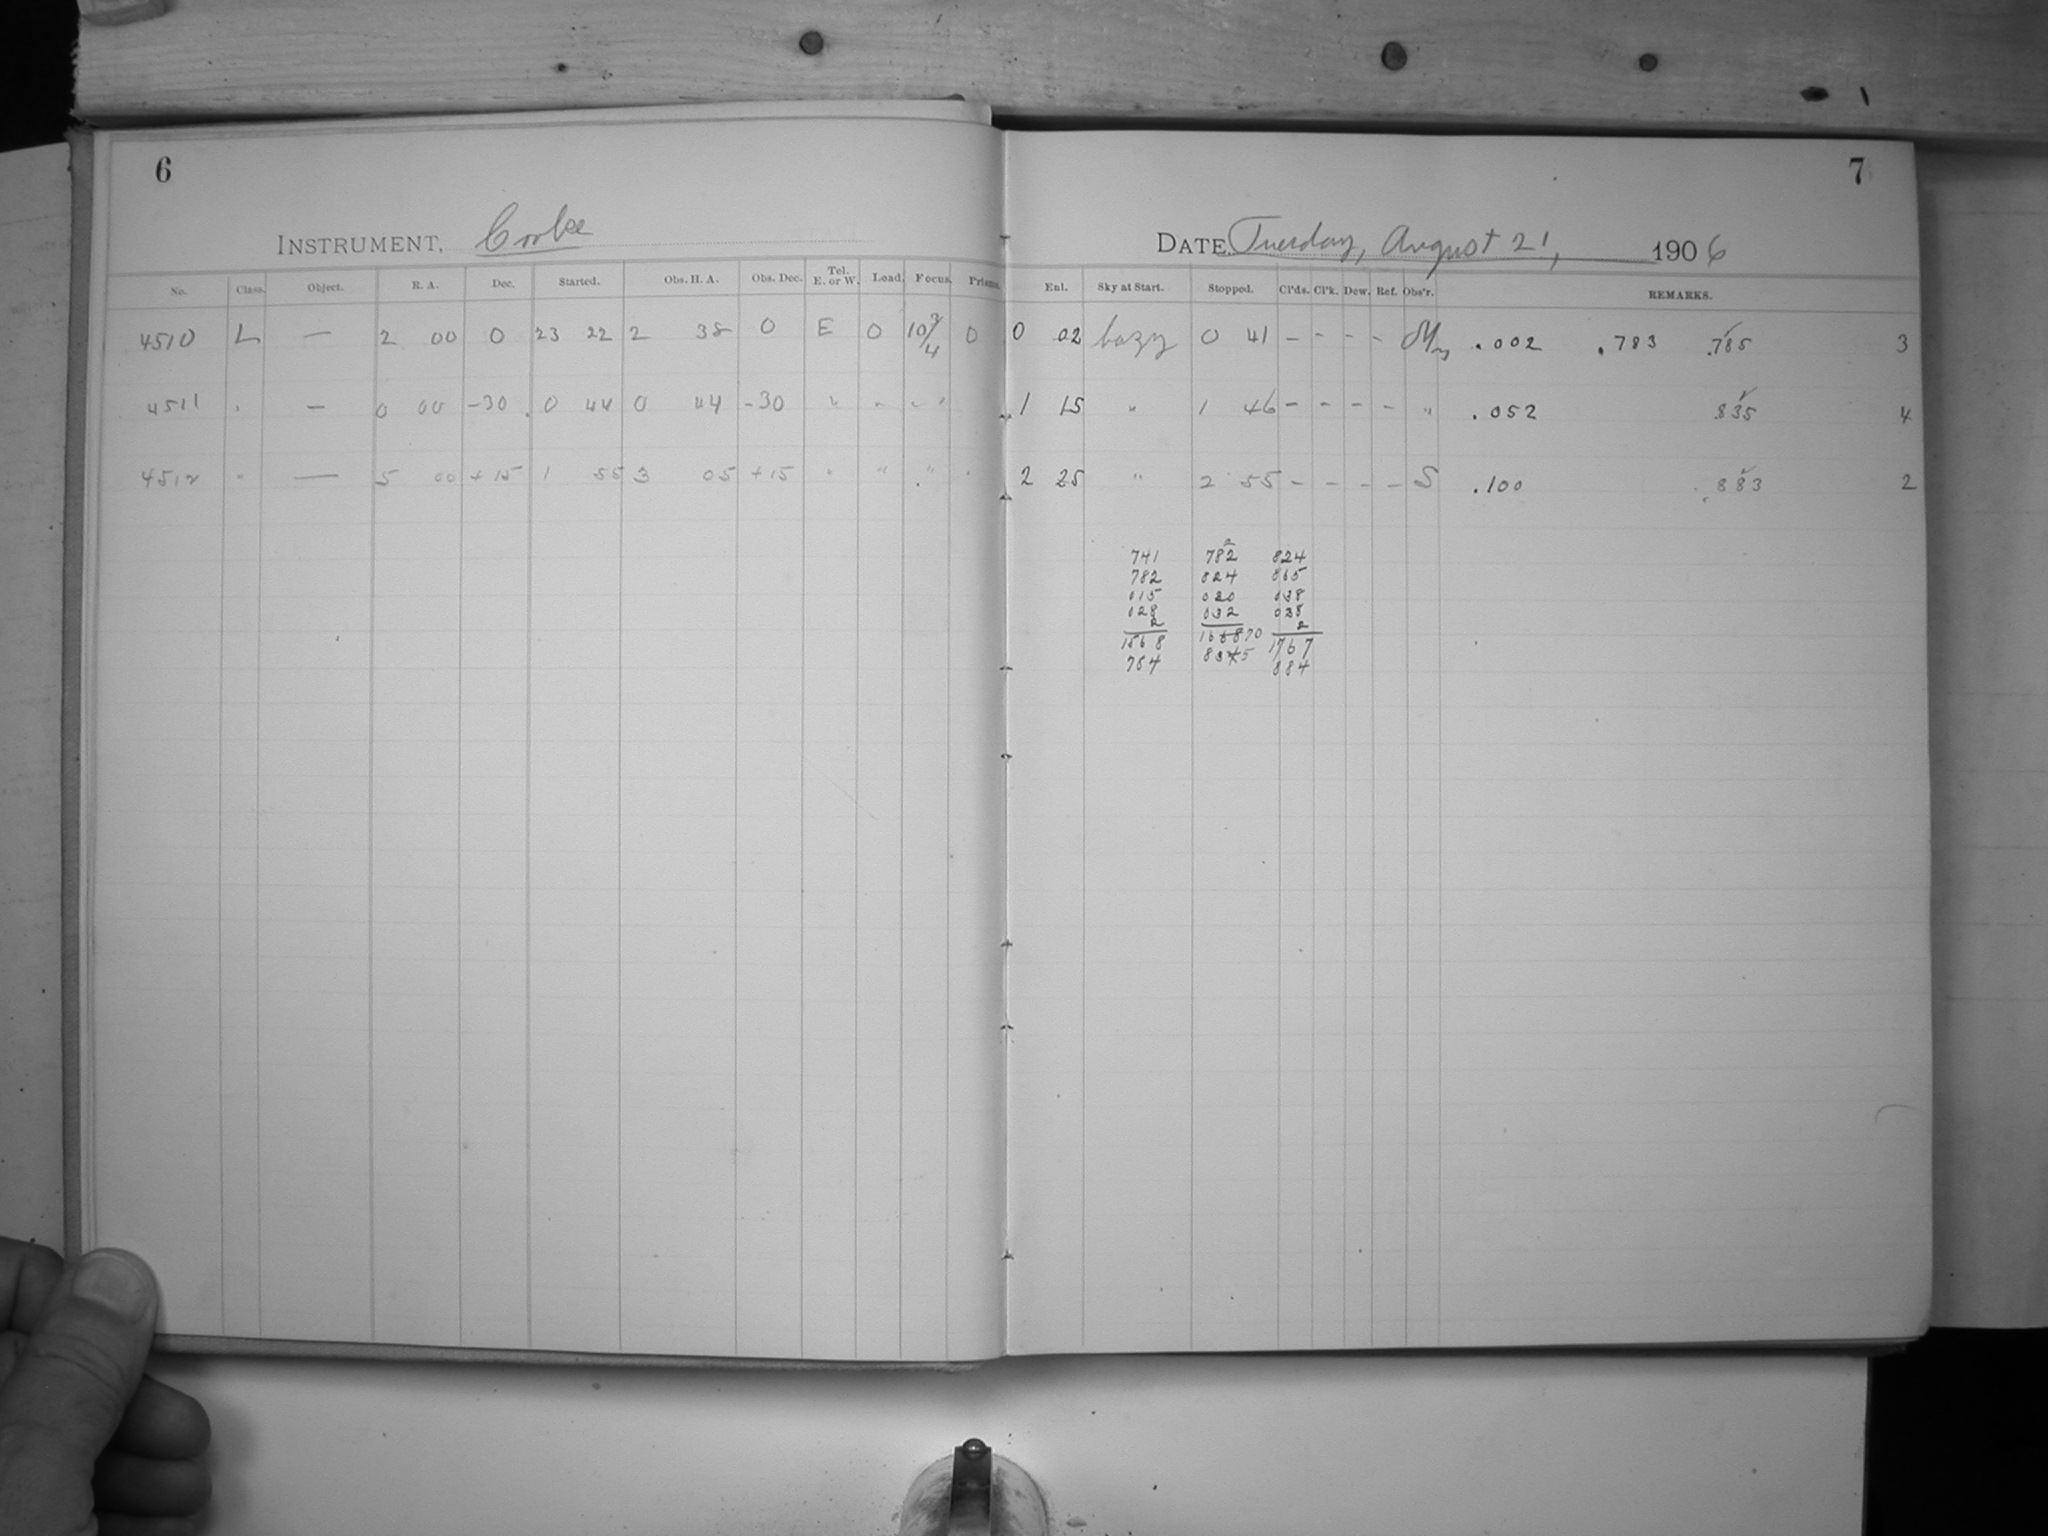 6
INSTRUMENT, Cooke
No. Class. Object. R. A. Dec. Started. Obs. H. A. Obs. Dec. Tel. E. or W. Load. Focus. Prisms.
4510 L — 2 00 0 23 22 2 38 0 E 0 10 3/4 0
4511 " — 0 00 -30 0 44 0 44 -30 " " " "
4512 " — 5 00 +15 1 55 3 05 +15 " " " "
7
DATE. Tuesday, August 21, 1906
Enl. Sky at Start. Stopped. Cl'ds. Cl'k. Dew. Ref. Obs'r. REMARKS.
0 02 hazy 0 41 - - - - .002 .783 .785 3
1 15 " 1 46 - - - - " .052 835 4
2 25 " 2 55 - - - - S .100 .883 2
741 782 824
782 824 865
015 020 038
028 032 038
2 2
1568 70 1767
784 884